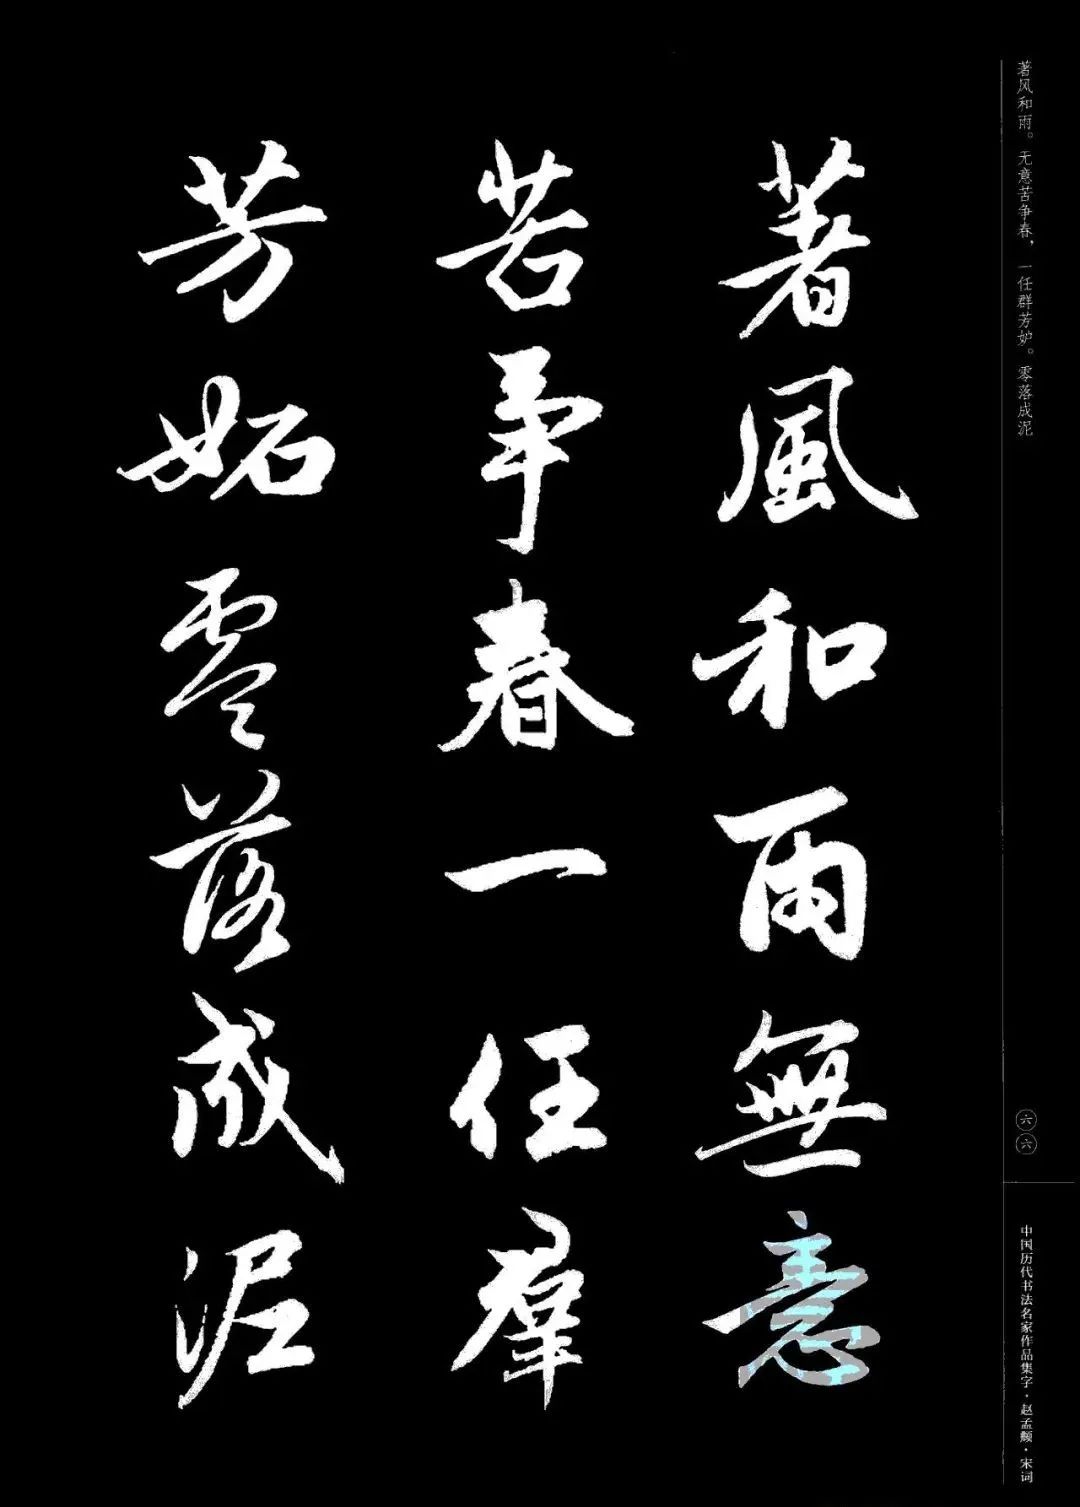 著风和雨。无意苦争春，一任群芳妒。零落成泥
著風和雨無意
苦争春一任羣
芳妬零落成泥
六六
中国历代书法名家作品集字·赵孟頫·宋词